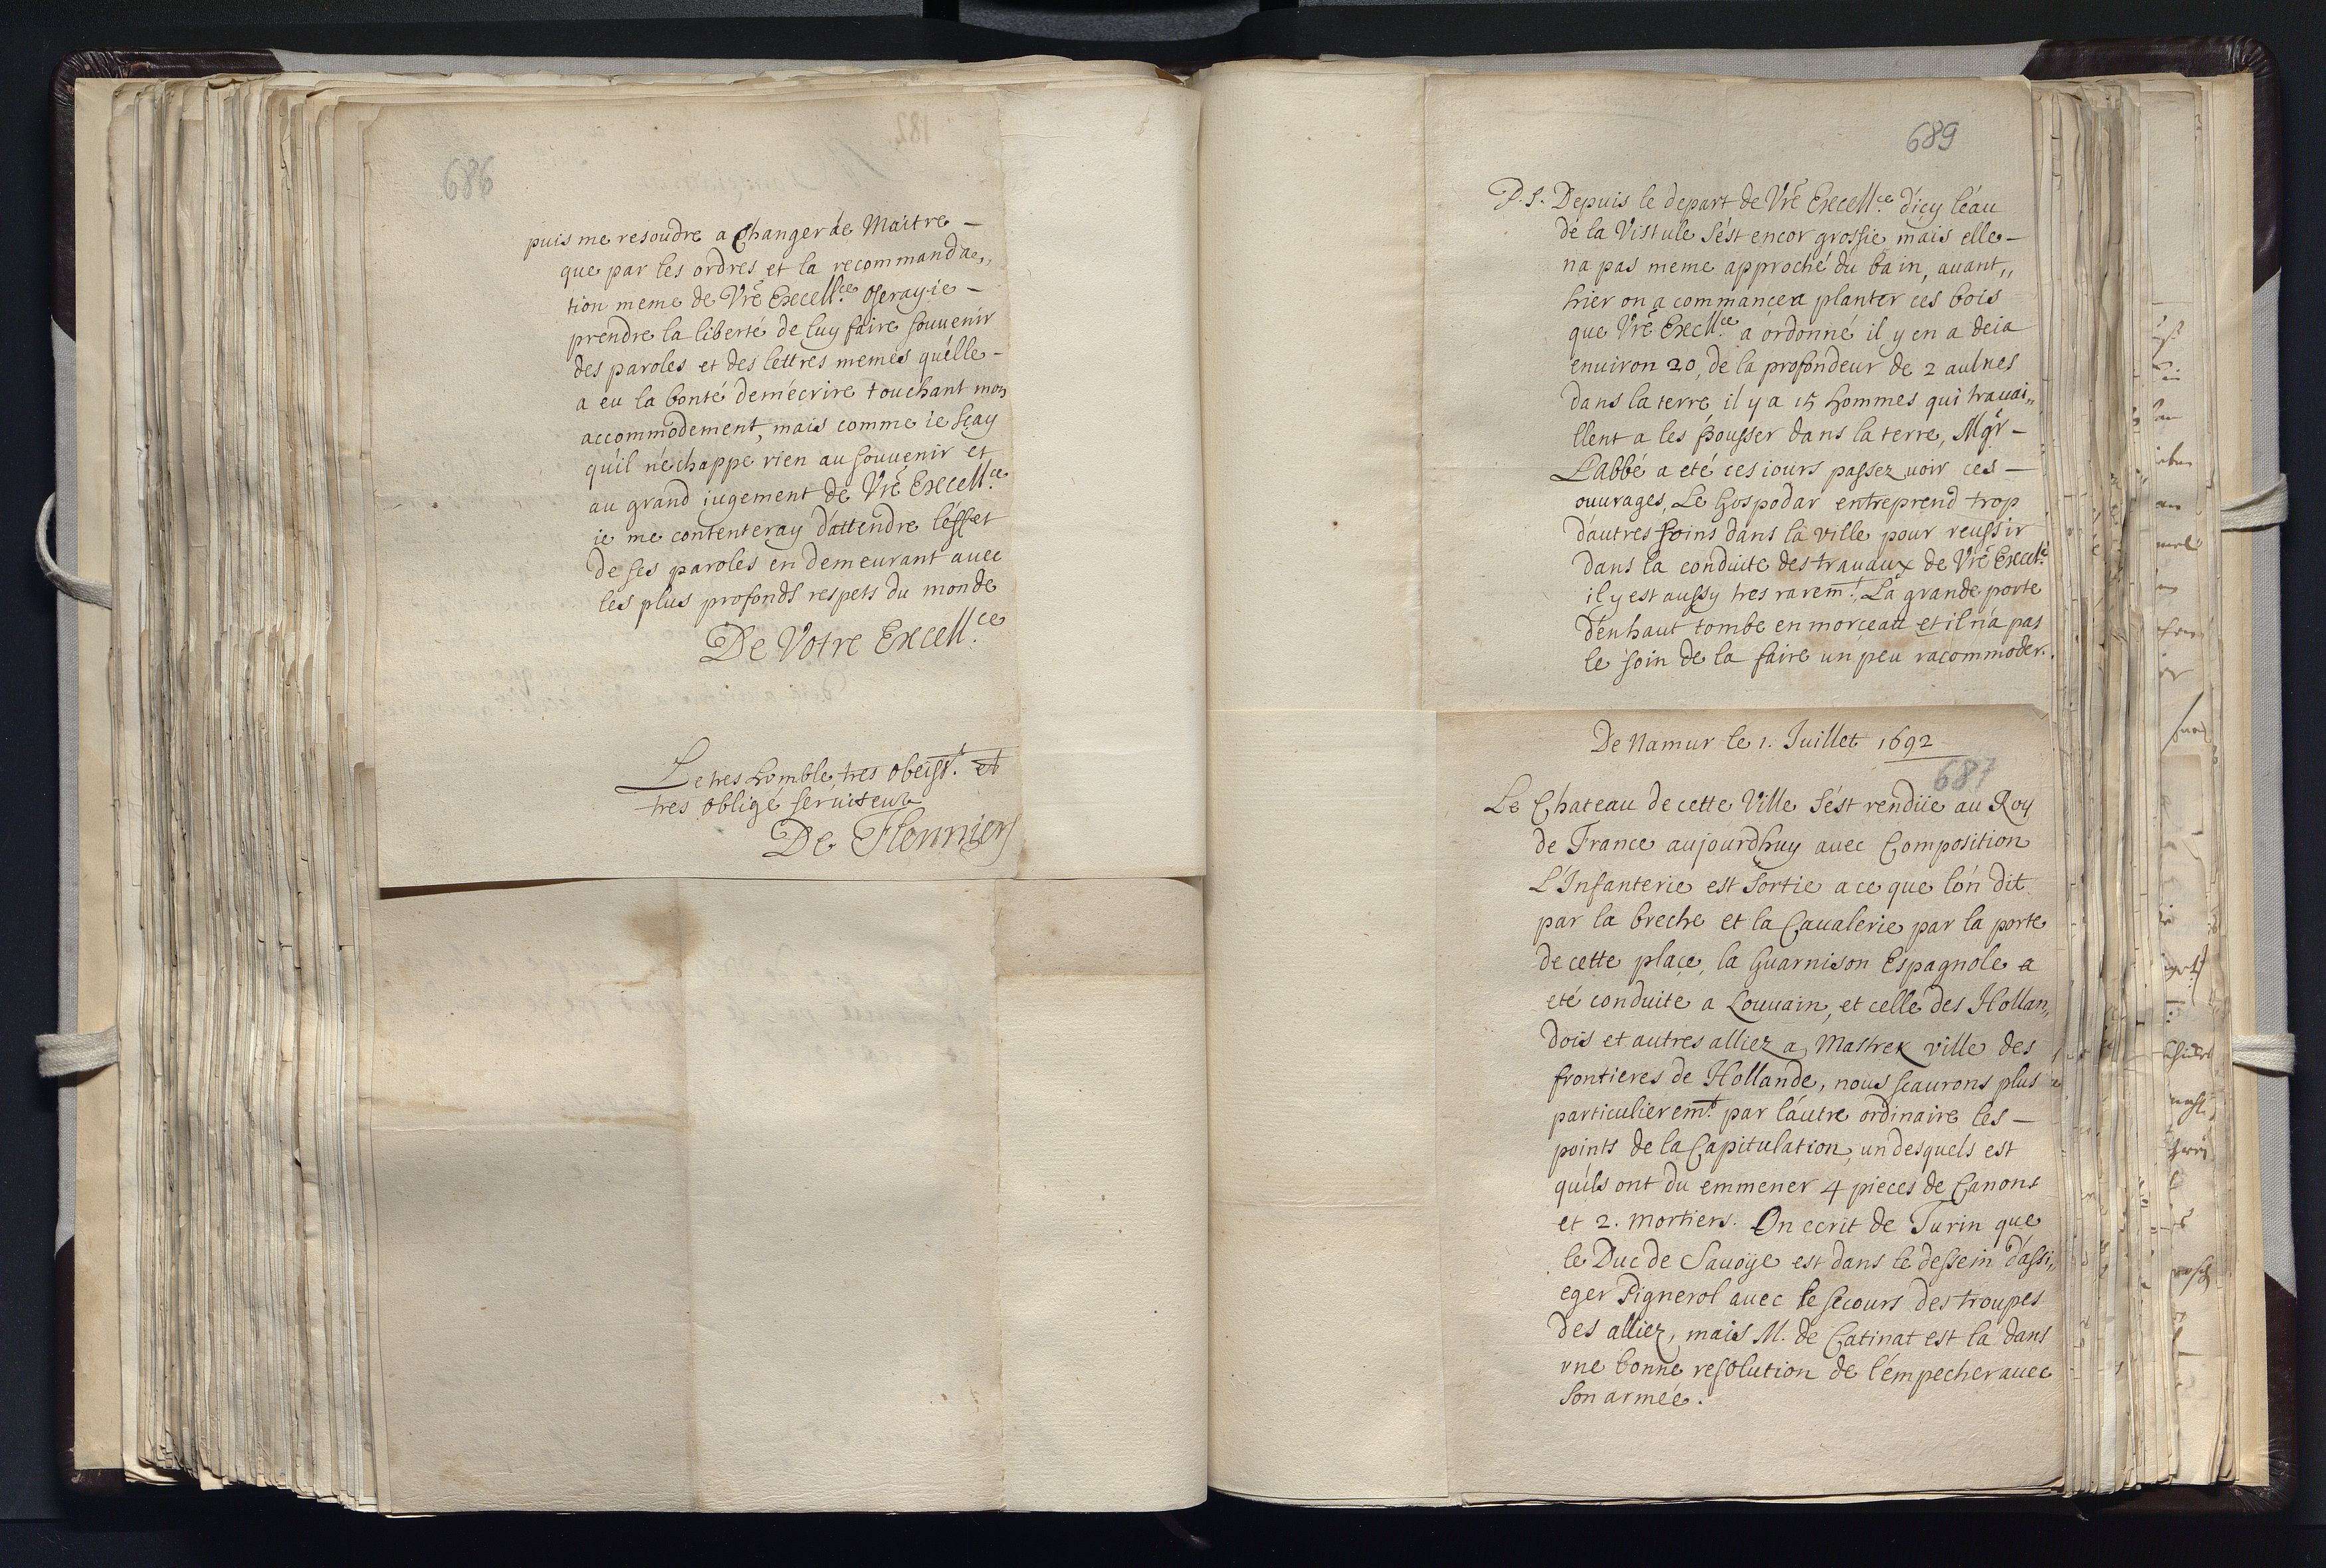 686
puis me resoudre a Changer de Maitre –
que par les ordres et la recommanda„
tion meme de Vrẽ Excell.ce oseray-ie –
prendre la liberté de luy faire souuenir
des paroles et des lettres memes qu'elle –
a eu la bonté de m'écrire touchant mon
accommodement, mais comme ie sçay
qu'il n'echappe rien au souuenir et
au grand iugement de Vrẽ Excell.ce
ie me contenteray d'attendre l'effet
de ses paroles en demeurant auec
les plus profonds respets du monde
De Votre Excell.ce
Le tres humble, tres obeisst. et
tres obligé seruiteur
De
689
P.S. Depuis le depart de Vrẽ Excell.ce d'icy l'eau
de la Vistule s'ést encor grossie mais elle –
na pas meme approché du bain, auant„
hier on a commancer a planter ces bois
que Vrẽ Excll.ce a ordonné il y en a deia
enuiron 20, de la profondeur de 2 aulnes
dans la terre il y a 15 hommes qui trauai„
llent a les pousser dans la terre, Mgr –
L'abbé a eté ces iours passez uoir ces –
ouurages, Le Gospodar entreprend trop
d'autres soins dans la ville pour reussir
dans la conduite des trauaux de Vrẽ Excel.ce
il y est aussy tres rarem.t La grande porte
d'en haut tombe en morceau et il n'a pas
le soin de la faire un peu racommoder.
De Namur le 1. Juillet 1692
687
Le Chateau de cette Ville s'ést rendüe au Roy
de France aujourdhuy auec Composition
L'Infanterie est sortie a ce que l'on dit
par la breche et la Caualerie par la porte
de cette place, la Guarnison Espagnole a
eté conduite a Louuain, et celle des Hollan„
dois et autres alliez a Mastrek ville des
frontieres de Hollande, nous scaurons plus
particulierem.t par l'autre ordinaire les –
points de la Capitulation, un desquels est
qu'ils ont du emmener 4 pieces de Canons
et 2. mortiers. On ecrit de Turin que
le Duc de Sauoÿe est dans le dessein d'assi„
eger Pignerol auec le secours des troupes
des alliez, mais M. de Catinat est la dans
vne bonne resolution de l'empecher auec
son armée.